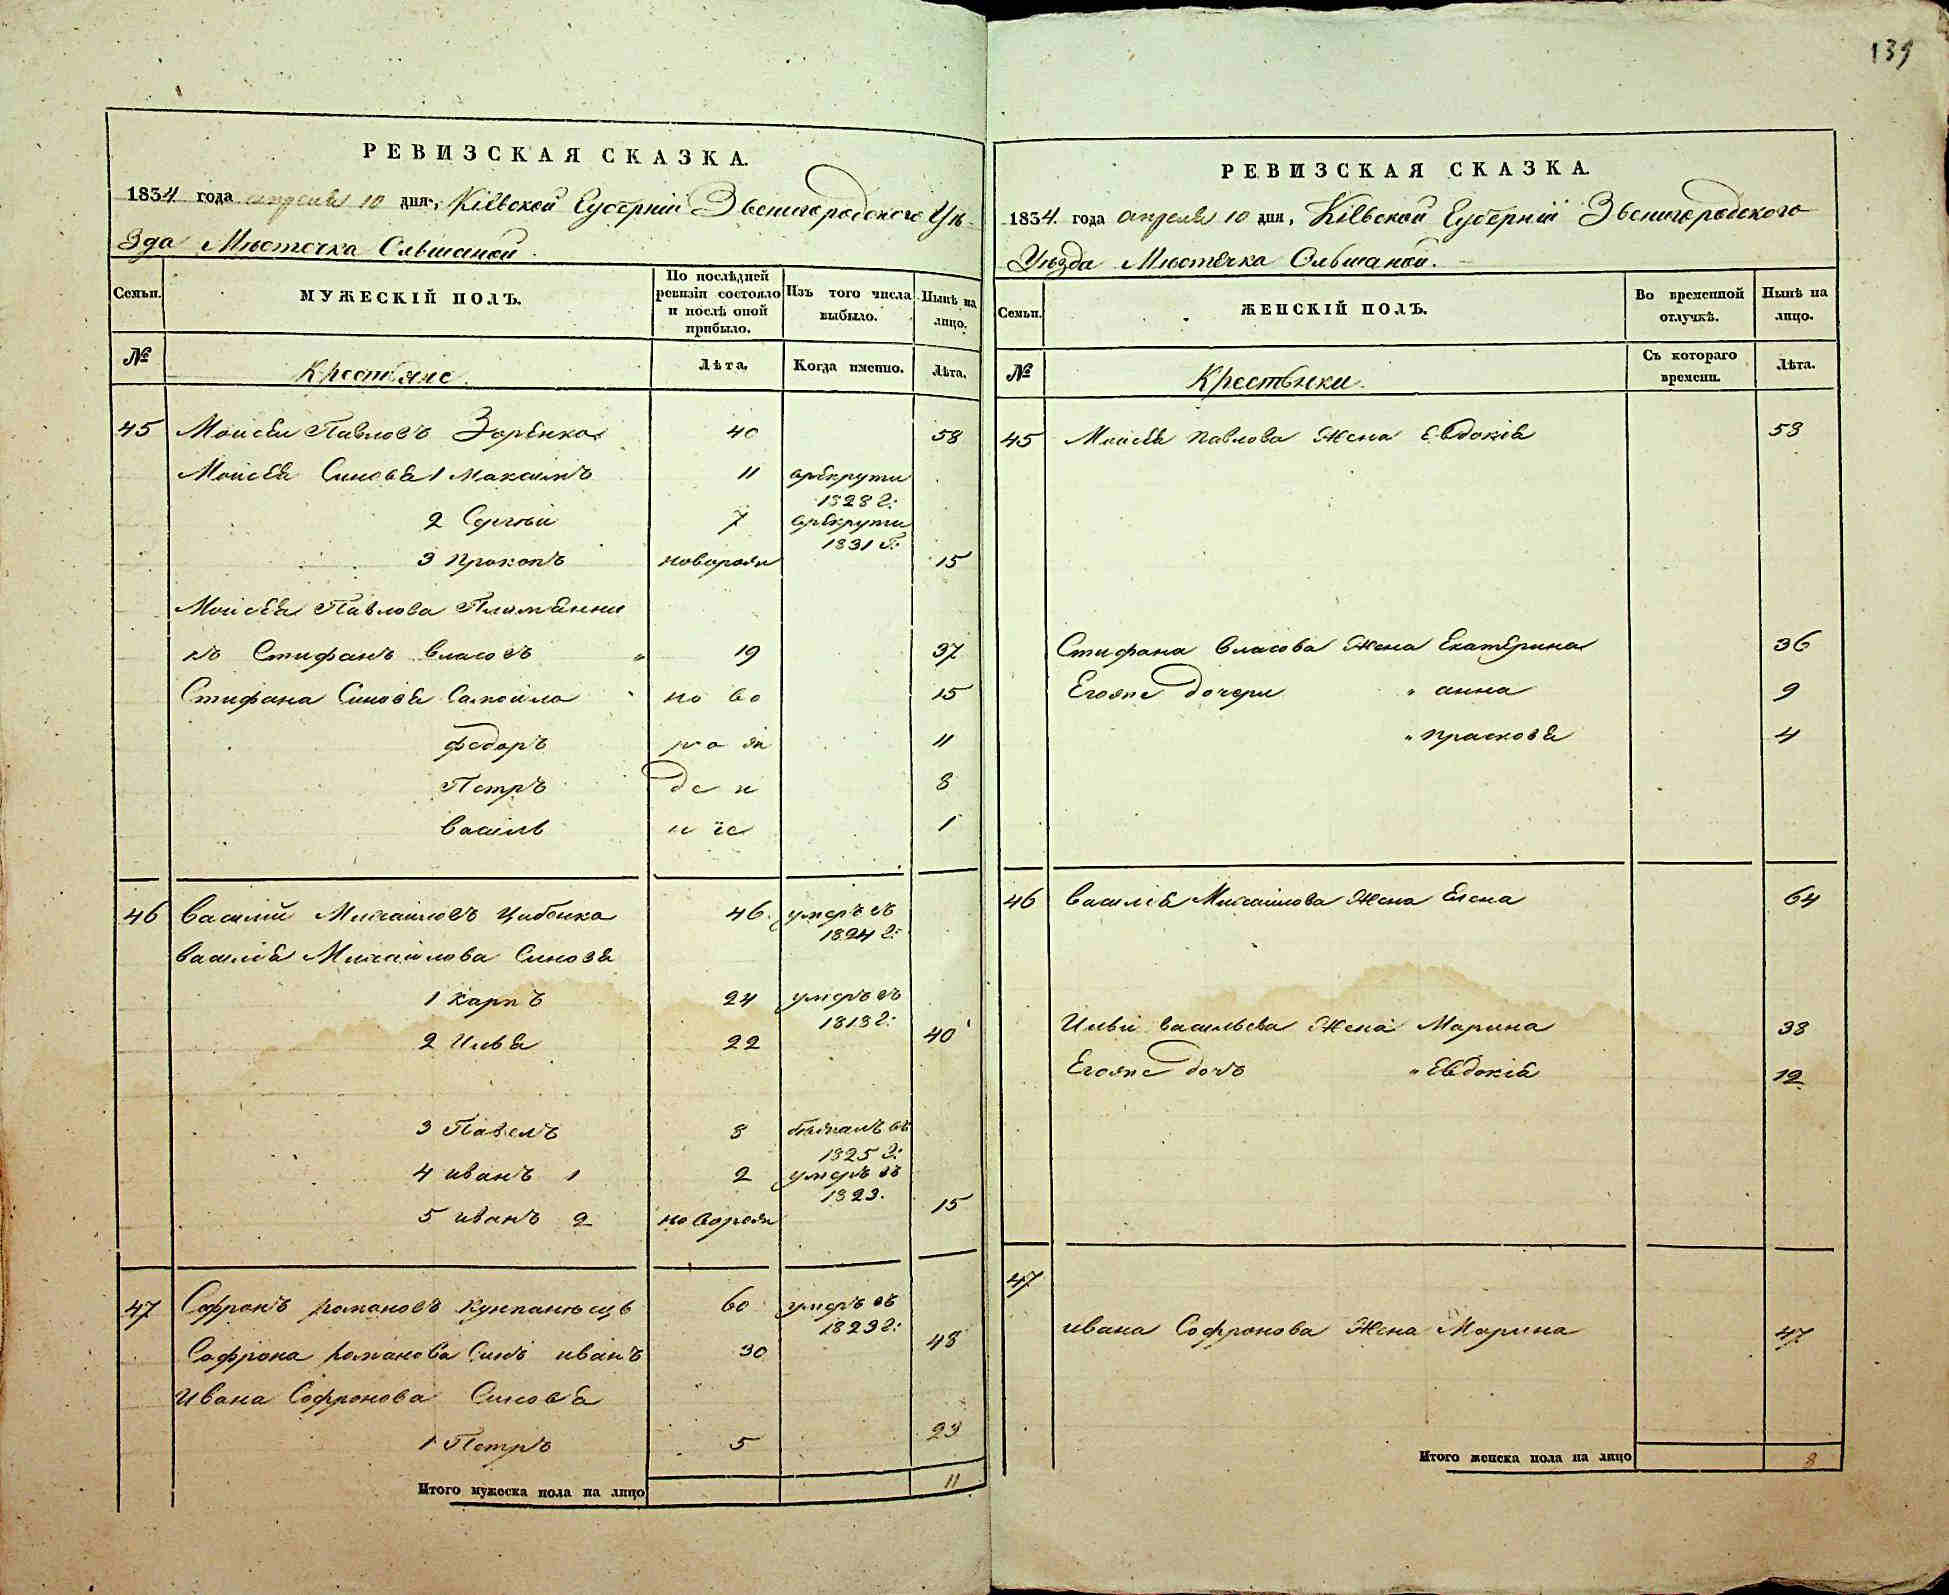 139
РЕВИЗСКАЯ СКАЗКА.
1834 года апреля 10 дня, Кіевской Губерніи Звенигородского Уѣ-
зда Мѣстечка Ольшаной.
Семьи.
МУЖЕСКІЙ ПОЛЪ.
По послѣдней ревизіи состояло и послѣ оной прибыло.
Изъ того числа выбыло.
Нынѣ на лицо.
№ Крестьяне. Лѣта. Когда именно. Лѣта.
45 Моисей Павловъ Зоренко 40 58
Моисея Синовя 1 Максимъ 11 врекрути 1828 г:
2 Сергѣй 7 врекрути 1831 г:
3 Прокопъ новорож 15
Моисея Павлова Племянни
къ Стифанъ Власовъ " 19 37
Стифана Синовя Самойло но во 15
Федоръ ро ж 11
Петръ де н 8
Василь н іе 1
46 Василий Михайловъ Цибенко 46 умеръ въ 1824 г:
Василія Михайлова Синовя
1 Карпъ 24 умеръ въ 1818 г:
2 Илья 22 40
3 Павелъ 8 бѣжалъ въ 1825 г:
4 Иванъ 1 2 умеръ въ 1823.
5 Иванъ 2 новорож 15
47 Софронъ Романовъ 60 умеръ въ 1823 г:
Софрона Романова Синъ Иванъ 30 48
Ивана Софронова Синовя
1 Петръ 5 23
Итого мужеска пола на лицо 11
РЕВИЗСКАЯ СКАЗКА.
1834. года апреля 10 дня, Кіевской Губерніи Звенигородского
Уѣзда Мѣстечка Ольшаной.
Семьи.
ЖЕНСКІЙ ПОЛЪ.
Во временной отлучкѣ.
Нынѣ на лицо.
№ Крестьянки. Съ котораго времени. Лѣта.
45 Моисея Павлова Жена Евдокія 58
Стифана Власова Жена Екатерина 36
Егоже дочери " Анна 9
" Прасковя 4
46 Василія Михайлова Жена Елена 64
Ильи Васильева Жена Марина 38
Егоже дочъ " Евдокія 12
47
Ивана Софронова Жена Марина 47
Итого женска пола на лицо 8